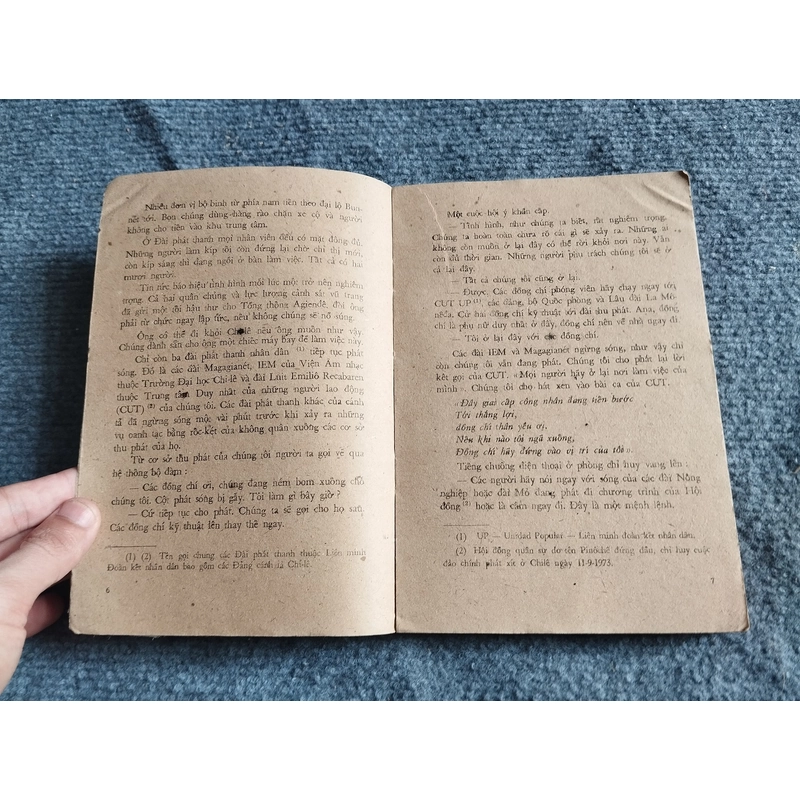 Nhiều đơn vị bộ binh từ phía nam tiến theo đại lộ Bun-
nét tới. Bọn chúng dùng hàng rào chặn xe cộ và người
không cho tiến vào khu trung tâm.
Ở Đài phát thanh mọi nhân viên đều có mặt đông đủ.
Những người làm kíp tối còn đứng lại chờ chỉ thị mới,
còn kíp sáng thì đang ngồi ở bàn làm việc. Tất cả có hai
mươi người.
Tin tức báo hiệu tình hình mỗi lúc một trở nên nghiêm
trọng. Cả bai quân chúng và lực lượng cảnh sát vũ trang
đã gửi một tối hậu thư cho Tổng thống Agienđê, đòi ông
phải từ chức ngay lập tức, nếu không chúng sẽ nổ súng.
Ông có thể đi khỏi Chi-lê nếu ông muốn như vậy.
Chúng dành sẵn cho ông một chiếc máy bay để làm việc này.
Chỉ còn ba đài phát thanh nhân dân (1) tiếp tục phát
sóng. Đó là các đài Magagianét, IEM của Viện Âm nhạc
thuộc Trường Đại học Chi-lê và đài Luis Emiliô Recabaren
thuộc Trung tâm Duy nhất của những người lao động
(CUT) (2) của chúng tôi. Các đài phát thanh khác của cánh
tả đã ngừng sóng một vài phút trước khi xảy ra những
vụ oanh tạc bằng rốc-kết của không quân xuống các cơ sở
thu phát của họ.
Từ cơ sở thu phát của chúng tôi người ta gọi về qua
hệ thống bộ đàm:
— Các đồng chí ơi, chúng đang ném bom xuống chỗ
chúng tôi. Cột phát sóng bị gẫy. Tôi làm gì bây giờ?
— Cứ tiếp tục cho phát. Chúng ta sẽ gọi cho họ sau.
Các đồng chí kỹ thuật lên thay thế ngay.
(1) (2) Tên gọi chung các Đài phát thanh thuộc Liên minh
Đoàn kết nhân dân bao gồm các Đảng cánh tả Chi-lê.
6
Một cuộc hội ý khẩn cấp.
— Tình hình, như chúng ta biết, rất nghiêm trọng.
Chúng ta hoàn toàn chưa rõ cái gì sẽ xảy ra. Những ai
không còn muốn ở lại đây có thể rời khỏi nơi này. Vẫn
còn đủ thời gian. Những người phụ trách chúng tôi sẽ ở
cả lại đây.
— Tất cả chúng tôi cũng ở lại.
— Được. Các đồng chí phóng viên hãy chạy ngay tới
CUT UP (1), các đảng, bộ Quốc phòng và Lâu đài La Mô-
nêđa. Cử hai đồng chí kỹ thuật tới đài thu phát. Ana, đồng
chí là phụ nữ duy nhất ở đây, đồng chí nên về nhà ngay đi.
— Tôi ở lại đây với các đồng chí.
Các đài IEM và Magagianét ngừng sóng, như vậy chỉ
còn chúng tôi vẫn đang phát. Chúng tôi cho phát lại lời
kết gọi của CUT. «Mọi người hãy ở lại nơi làm việc của
mình». Chúng tôi cho hát xen vào bài ca của CUT.
Đây giai cấp công nhân đang tiến bước
Tới thắng lợi,
đồng chí thân yêu ơi,
Nếu khi nào tôi ngã xuống,
Đồng chí hãy đứng vào vị trí của tôi».
Tiếng chuông điện thoại ở phòng chỉ huy vang lên:
— Các người hãy nói ngay với sóng của các đài Nông
nghiệp hoặc đài Mỏ đang phát đi chương trình của Hội
đồng (2) hoặc là câm ngay đi. Đây là một mệnh lệnh.
(1) UP — Unidad Populer — Liên minh đoàn kết nhân dân.
(2) Hội đồng quân sự do tên Pinôchê đứng đầu, chỉ huy cuộc
đảo chính phát xít ở Chilê ngày 11-9-1973.
7